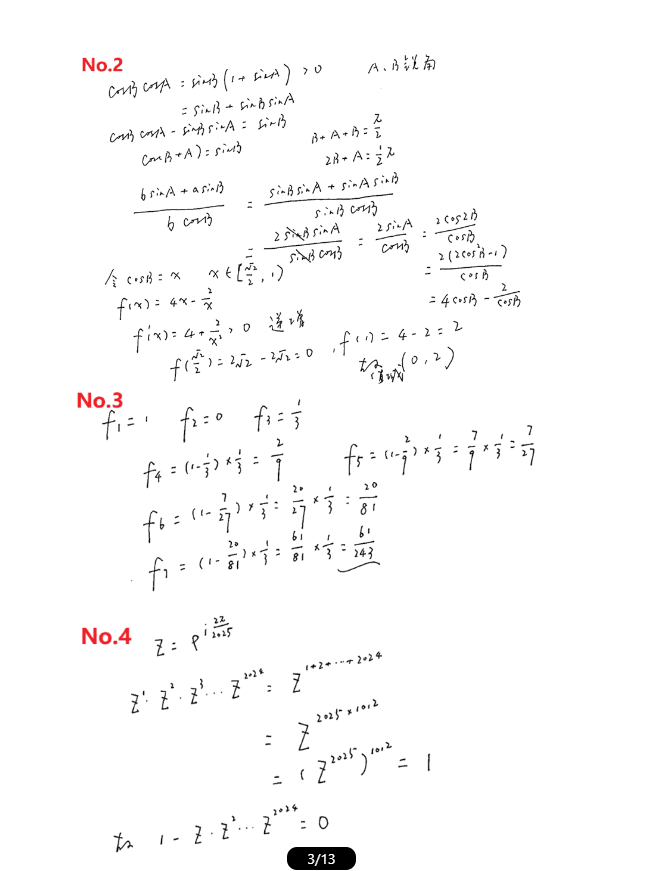 No.2
cosB cosA = sinB(1+sinA) > 0 A、B锐角
= sinB + sinB sinA
cosB cosA - sinB sinA = sinB
cos(B+A) = sinB B+A+B = π/2
2B+A = 1/2 π
(b sinA + a sinB)/(b cosB) = (sinB sinA + sinA sinB)/(sinB cosB)
= (2 sinB sinA)/(sinB cosB) = 2sinA/cosB = 2cos2B/cosB
令 cosB = x x∈[√2/2, 1) = 2(2cos²B-1)/cosB
f(x) = 4x - 2/x = 4cosB - 2/cosB
f'(x) = 4 + 2/x² > 0 递增
f(√2/2) = 2√2 - 2√2 = 0 , f(1) = 4-2 = 2
故 (0, 2)
No.3
f₁ = 1 f₂ = 0 f₃ = 1/3
f₄ = (1-1/3)×1/3 = 2/9 f₅ = (1-2/9)×1/3 = 7/9×1/3 = 7/27
f₆ = (1-7/27)×1/3 = 20/27×1/3 = 20/81
f₇ = (1-20/81)×1/3 = 61/81×1/3 = 61/243
No.4
Z = e^(i 2π/2025)
Z¹·Z²·Z³…Z^2024 = Z^(1+2+…+2024)
= Z^(2025×1012)
= (Z^2025)^1012 = 1
故 1 - Z·Z²…Z^2024 = 0
3/13